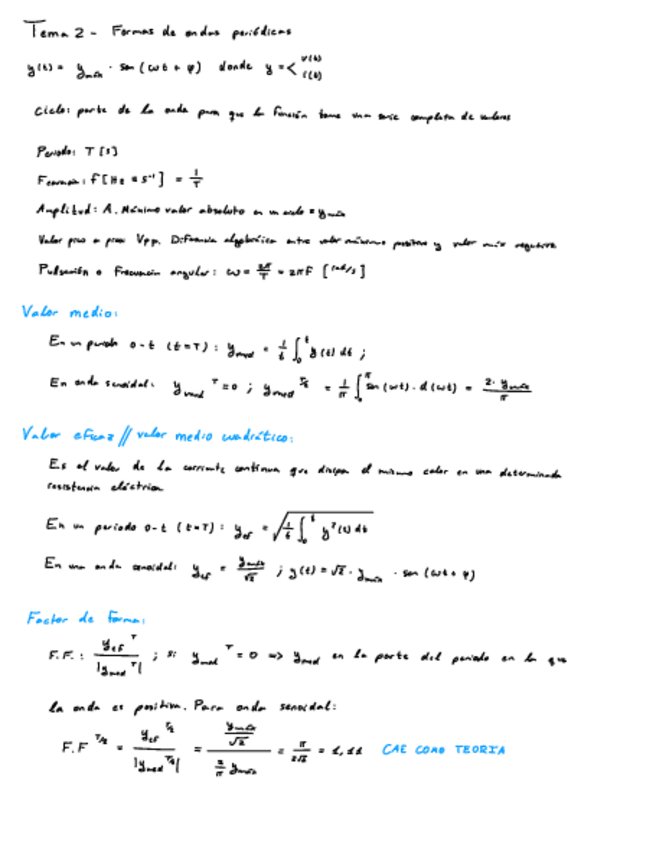 Tema 2 - Formas de ondas periódicas
y(t) = ymáx · sen (ωt + φ) donde y = < v(t) i(t)
Ciclo: parte de la onda para que la función tome una serie completa de valores
Periodo: T [s]
Frecuencia: f [Hz = s⁻¹] = 1/T
Amplitud: A. Máximo valor absoluto en un ciclo = ymáx
Valor pico a pico: Vpp. Diferencia algebráica entre valor máximo positivo y valor máx negativo
Pulsación o Frecuencia angular: ω = 2π/T = 2πF [rad/s]
Valor medio:
En un periodo 0-t (t=T): ymed = 1/t ∫₀ᵗ y(t) dt ;
En onda senoidal: ymed ᵀ = 0 ; ymed ᵀ/² = 1/π ∫₀^π sen (ωt) · d(ωt) = 2 · ymáx/π
Valor eficaz // valor medio cuadrático:
Es el valor de la corriente continua que disipa el mismo calor en una determinada
resistencia eléctrica
En un periodo 0-t (t=T): yef = √(1/t ∫₀ᵗ y²(t) dt)
En una onda senoidal: yef = ymáx/√2 ; y(t) = √2 · ymáx · sen (ωt + φ)
Factor de forma:
F.F.: yef ᵀ/|ymed ᵀ| ; si ymed ᵀ = 0 => ymed en la parte del periodo en la que
la onda es positiva. Para onda senoidal:
F.F ᵀ/² = yef ᵀ/²/|ymed ᵀ/²| = (ymáx/√2)/(2/π ymáx) = π/2√2 = 1,11 CAE COMO TEORIA